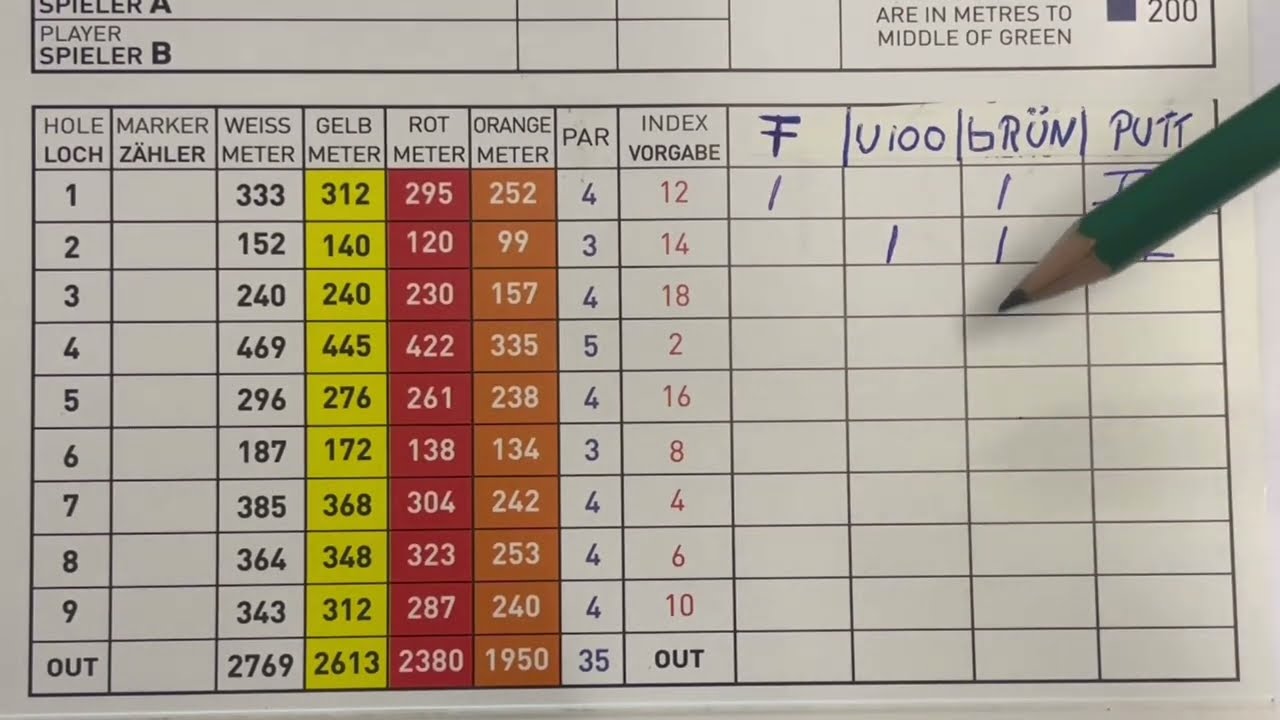 SPIELER A
PLAYER
SPIELER B
ARE IN METRES TO
MIDDLE OF GREEN
200
HOLE LOCH MARKER ZÄHLER WEISS METER GELB METER ROT METER ORANGE METER PAR INDEX VORGABE F U100 bRÜN PUTT
1 333 312 295 252 4 12 1 1
2 152 140 120 99 3 14 1 1
3 240 240 230 157 4 18
4 469 445 422 335 5 2
5 296 276 261 238 4 16
6 187 172 138 134 3 8
7 385 368 304 242 4 4
8 364 348 323 253 4 6
9 343 312 287 240 4 10
OUT 2769 2613 2380 1950 35 OUT